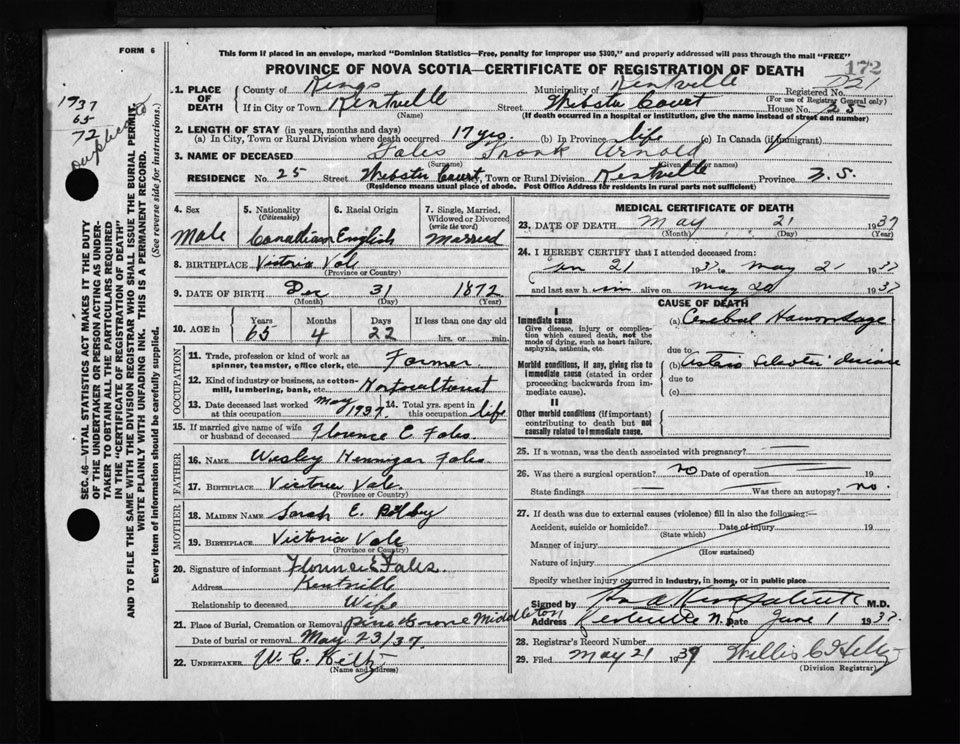 FORM 6
This form if placed in an envelope, marked "Dominion Statistics—Free, penalty for improper use $300," and properly addressed will pass through the mail "FREE"
PROVINCE OF NOVA SCOTIA—CERTIFICATE OF REGISTRATION OF DEATH
172
1937
65
72
duplicate
SEC. 46—VITAL STATISTICS ACT MAKES IT THE DUTY
OF THE UNDERTAKER OR PERSON ACTING AS UNDER-
TAKER TO OBTAIN ALL THE PARTICULARS REQUIRED
IN THE "CERTIFICATE OF REGISTRATION OF DEATH"
AND TO FILE THE SAME WITH THE DIVISION REGISTRAR WHO SHALL ISSUE THE BURIAL PERMIT.
WRITE PLAINLY WITH UNFADING INK. THIS IS A PERMANENT RECORD.
Every item of information should be carefully supplied. (See reverse side for instructions.)
1. PLACE OF DEATH County of Kings Municipality of Kentville Registered No. 221
(For use of Registrar General only)
If in City or Town Kentville Street Webster Court House No. 25
(Name) (If death occurred in a hospital or institution, give the name instead of street and number)
2. LENGTH OF STAY (in years, months and days)
(a) In City, Town or Rural Division where death occurred 17 yrs. (b) In Province life (c) In Canada (if immigrant)
3. NAME OF DECEASED Fales Frank Arnold
(Surname) (Given name or names)
RESIDENCE No. 25 Street Webster Court, Town or Rural Division Kentville Province N.S.
(Residence means usual place of abode. Post Office Address for residents in rural parts not sufficient)
4. Sex Male
5. Nationality (Citizenship) Canadian
6. Racial Origin English
7. Single, Married, Widowed or Divorced (write the word) Married
8. BIRTHPLACE Victoria Vale
(Province or Country)
9. DATE OF BIRTH Dec 31 1872
(Month) (Day) (Year)
10. AGE in Years 65 Months 4 Days 22 If less than one day old hrs. or min.
OCCUPATION
11. Trade, profession or kind of work as spinner, teamster, office clerk, etc. Farmer
12. Kind of industry or business, as cotton-mill, lumbering, bank, etc. Horticulturist
13. Date deceased last worked at this occupation May 1937 14. Total yrs. spent in this occupation life
15. If married give name of wife or husband of deceased Florence E Fales.
FATHER
16. NAME Wesley Hennigar Fales
17. BIRTHPLACE Victoria Vale
(Province or Country)
MOTHER
18. MAIDEN NAME Sarah E.
19. BIRTHPLACE Victoria Vale
(Province or Country)
20. Signature of informant Florence E Fales.
Address Kentville
Relationship to deceased Wife
21. Place of Burial, Cremation or Removal Pine Grove Middleton
Date of burial or removal May 23/37
22. UNDERTAKER W. C.
(Name and address)
MEDICAL CERTIFICATE OF DEATH
23. DATE OF DEATH May 21 1937
(Month) (Day) (Year)
24. I HEREBY CERTIFY that I attended deceased from:
Jan 21 1937 to May 21 1937
and last saw him alive on May 20 1937
CAUSE OF DEATH
I
Immediate cause
Give disease, injury or complication which caused death, not the mode of dying, such as heart failure, asphyxia, asthenia, etc.
(a) Cerebral Hemorrhage
due to
Morbid conditions, if any, giving rise to immediate cause (stated in order proceeding backwards from immediate cause).
(b) disease
due to
(c)
II
Other morbid conditions (if important) contributing to death but not causally related to immediate cause.
25. If a woman, was the death associated with pregnancy?
26. Was there a surgical operation? no Date of operation 19
State findings Was there an autopsy? no.
27. If death was due to external causes (violence) fill in also the following:—
Accident, suicide or homicide? Date of injury 19
(State which)
Manner of injury
(How sustained)
Nature of injury
Specify whether injury occurred in industry, in home, or in public place
Signed by M.D.
Address Kentville N.S. Date June 1 1937
28. Registrar's Record Number
29. Filed May 21 1937
(Division Registrar)